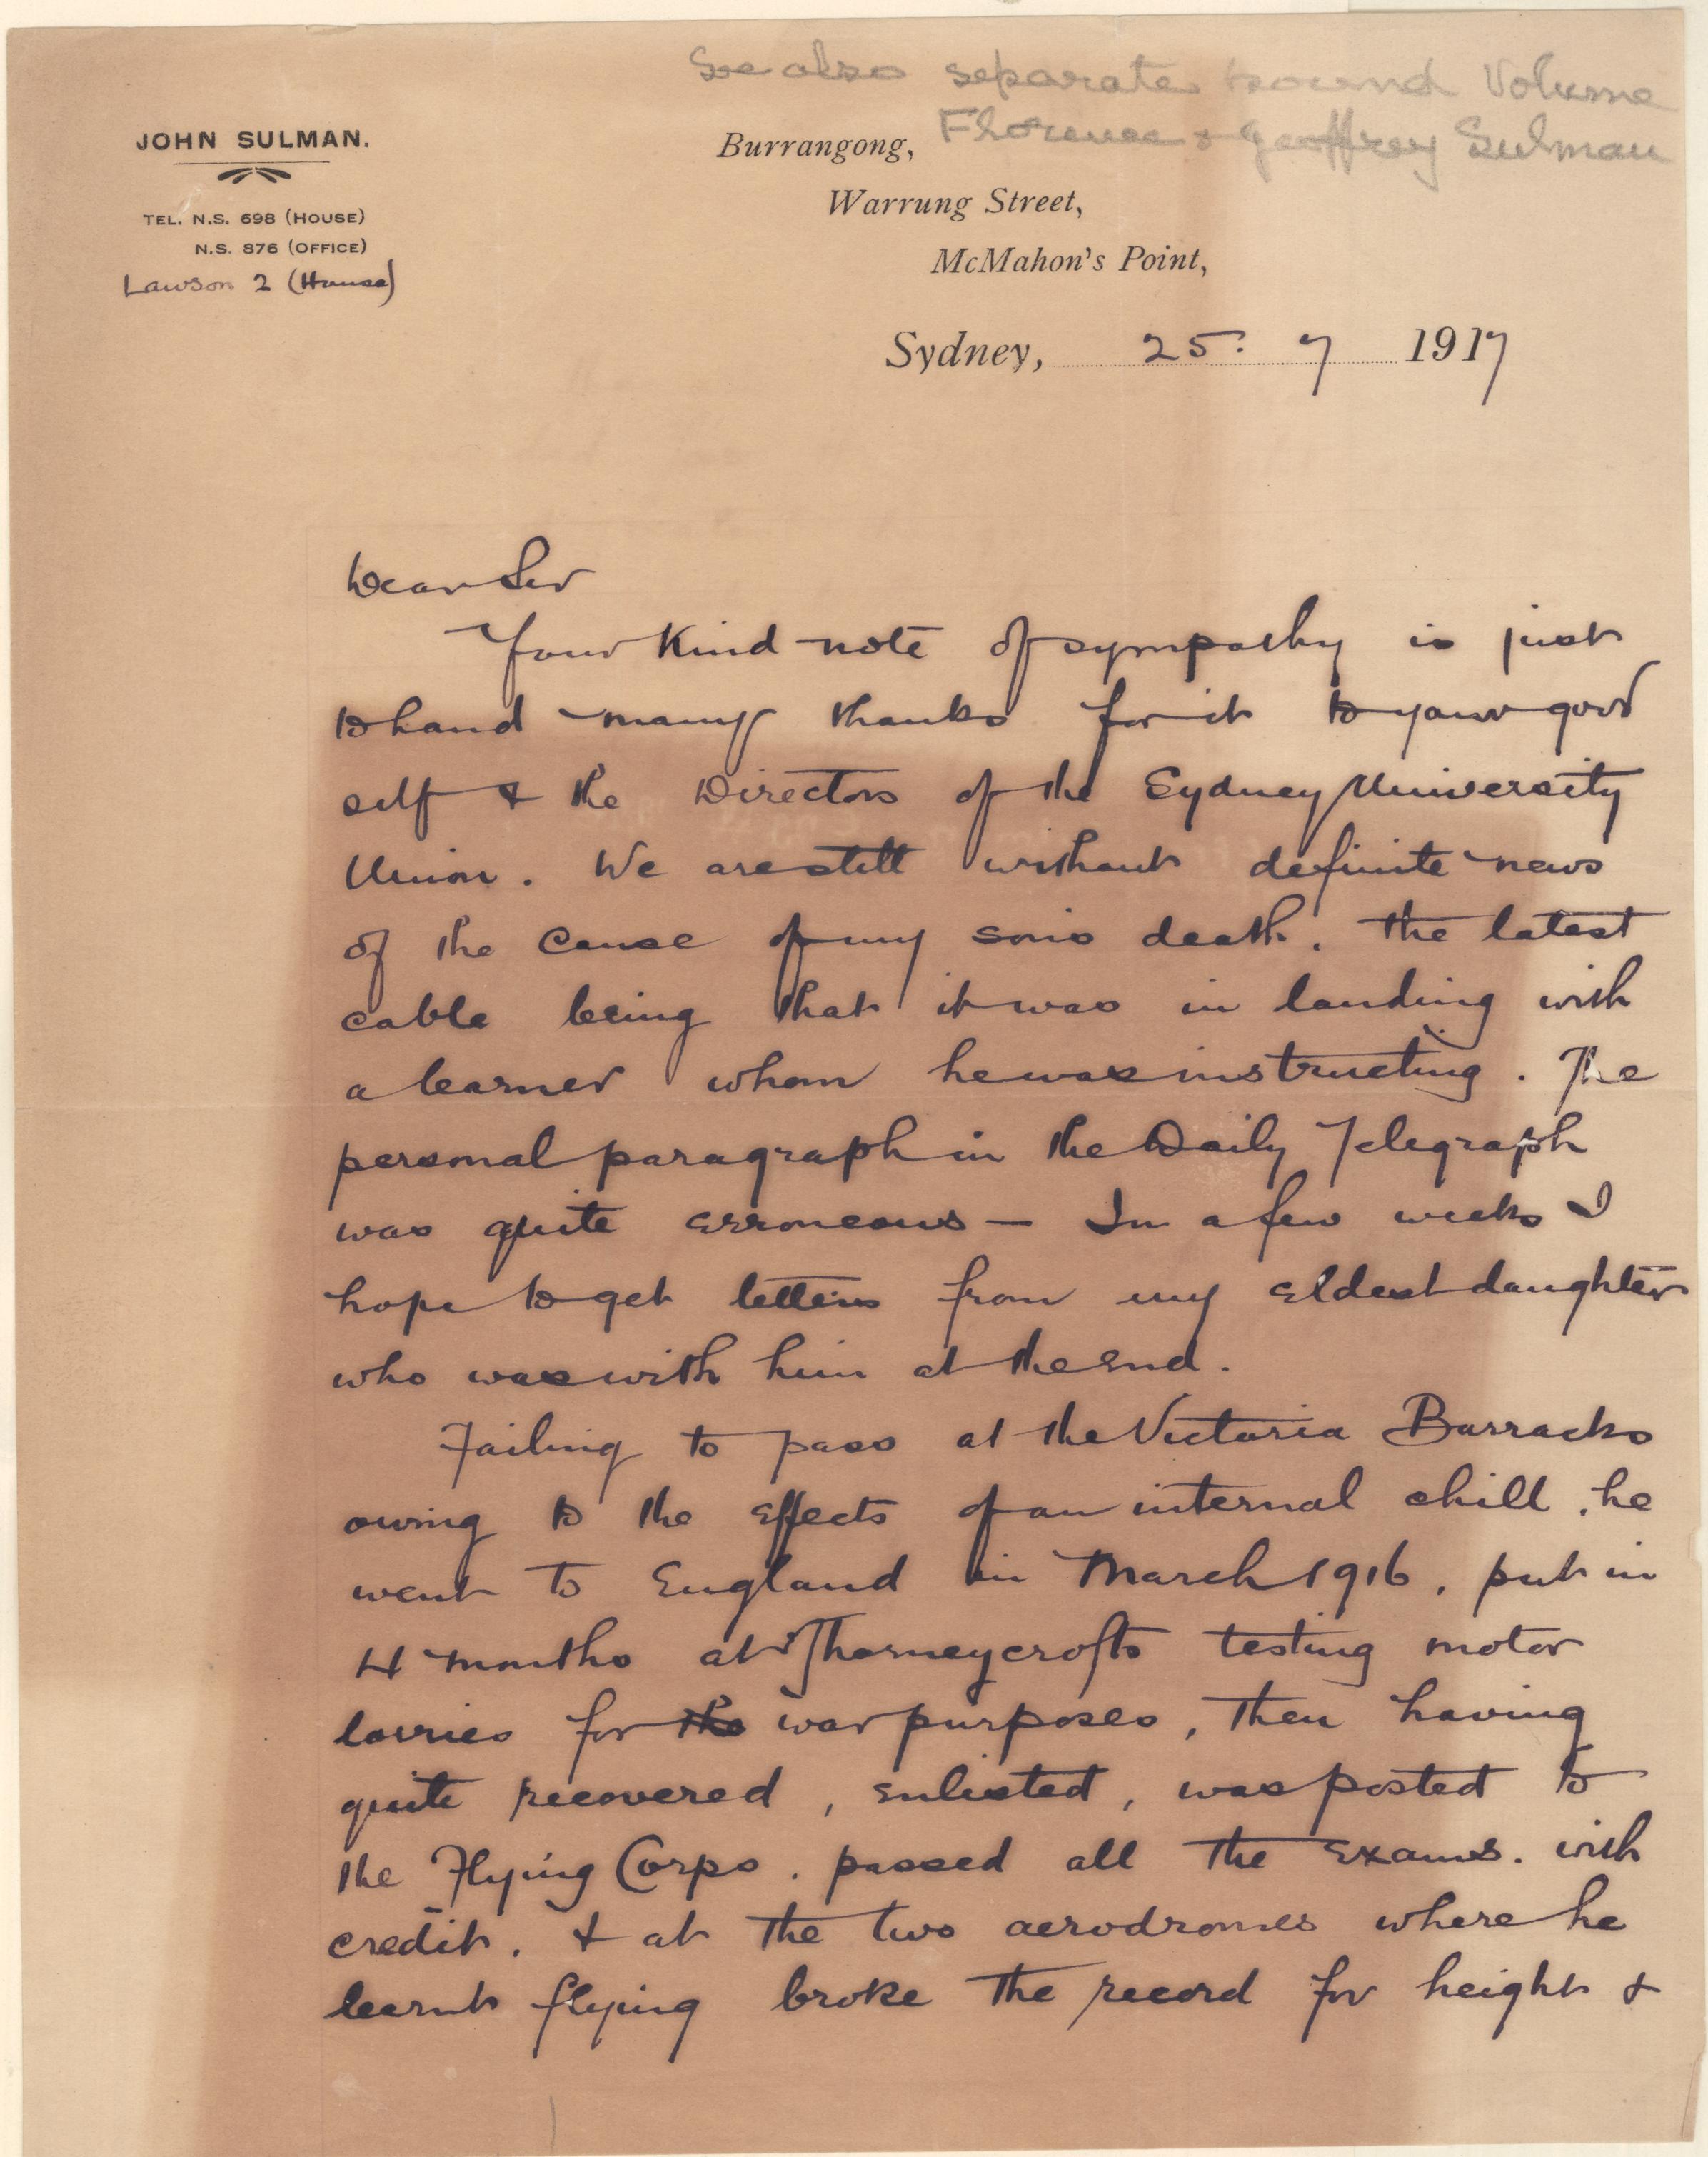 See also separate bound Volume
Florence & Geoffrey Sulman
JOHN SULMAN.
TEL. N.S. 698 (HOUSE)
N.S. 876 (OFFICE)
Lawson 2 (House)
Burrangong,
Warrung Street,
McMahon's Point,
Sydney, 25. 7 1917
Dear Sir
Your kind note of sympathy is just
to hand many thanks for it to your good
self & the Directors of the Sydney University
Union. We are still without definite news
of the cause of my son's death. The latest
cable being that it was in landing with
a learner whom he was instructing. The
personal paragraph in the Daily Telegraph
was quite erroneous — In a few weeks I
hope to get letters from my eldest daughter
who was with him at the end.
Failing to pass at the Victoria Barracks
owing to the effects of an internal chill, he
went to England in March 1916, put in
4 months at Thorneycrofts testing motor
lorries for the war purposes, then having
quite recovered, enlisted, was posted to
the Flying Corps. passed all the exams. with
credit. & at the two aerodromes where he
learnt flying broke the record for height &